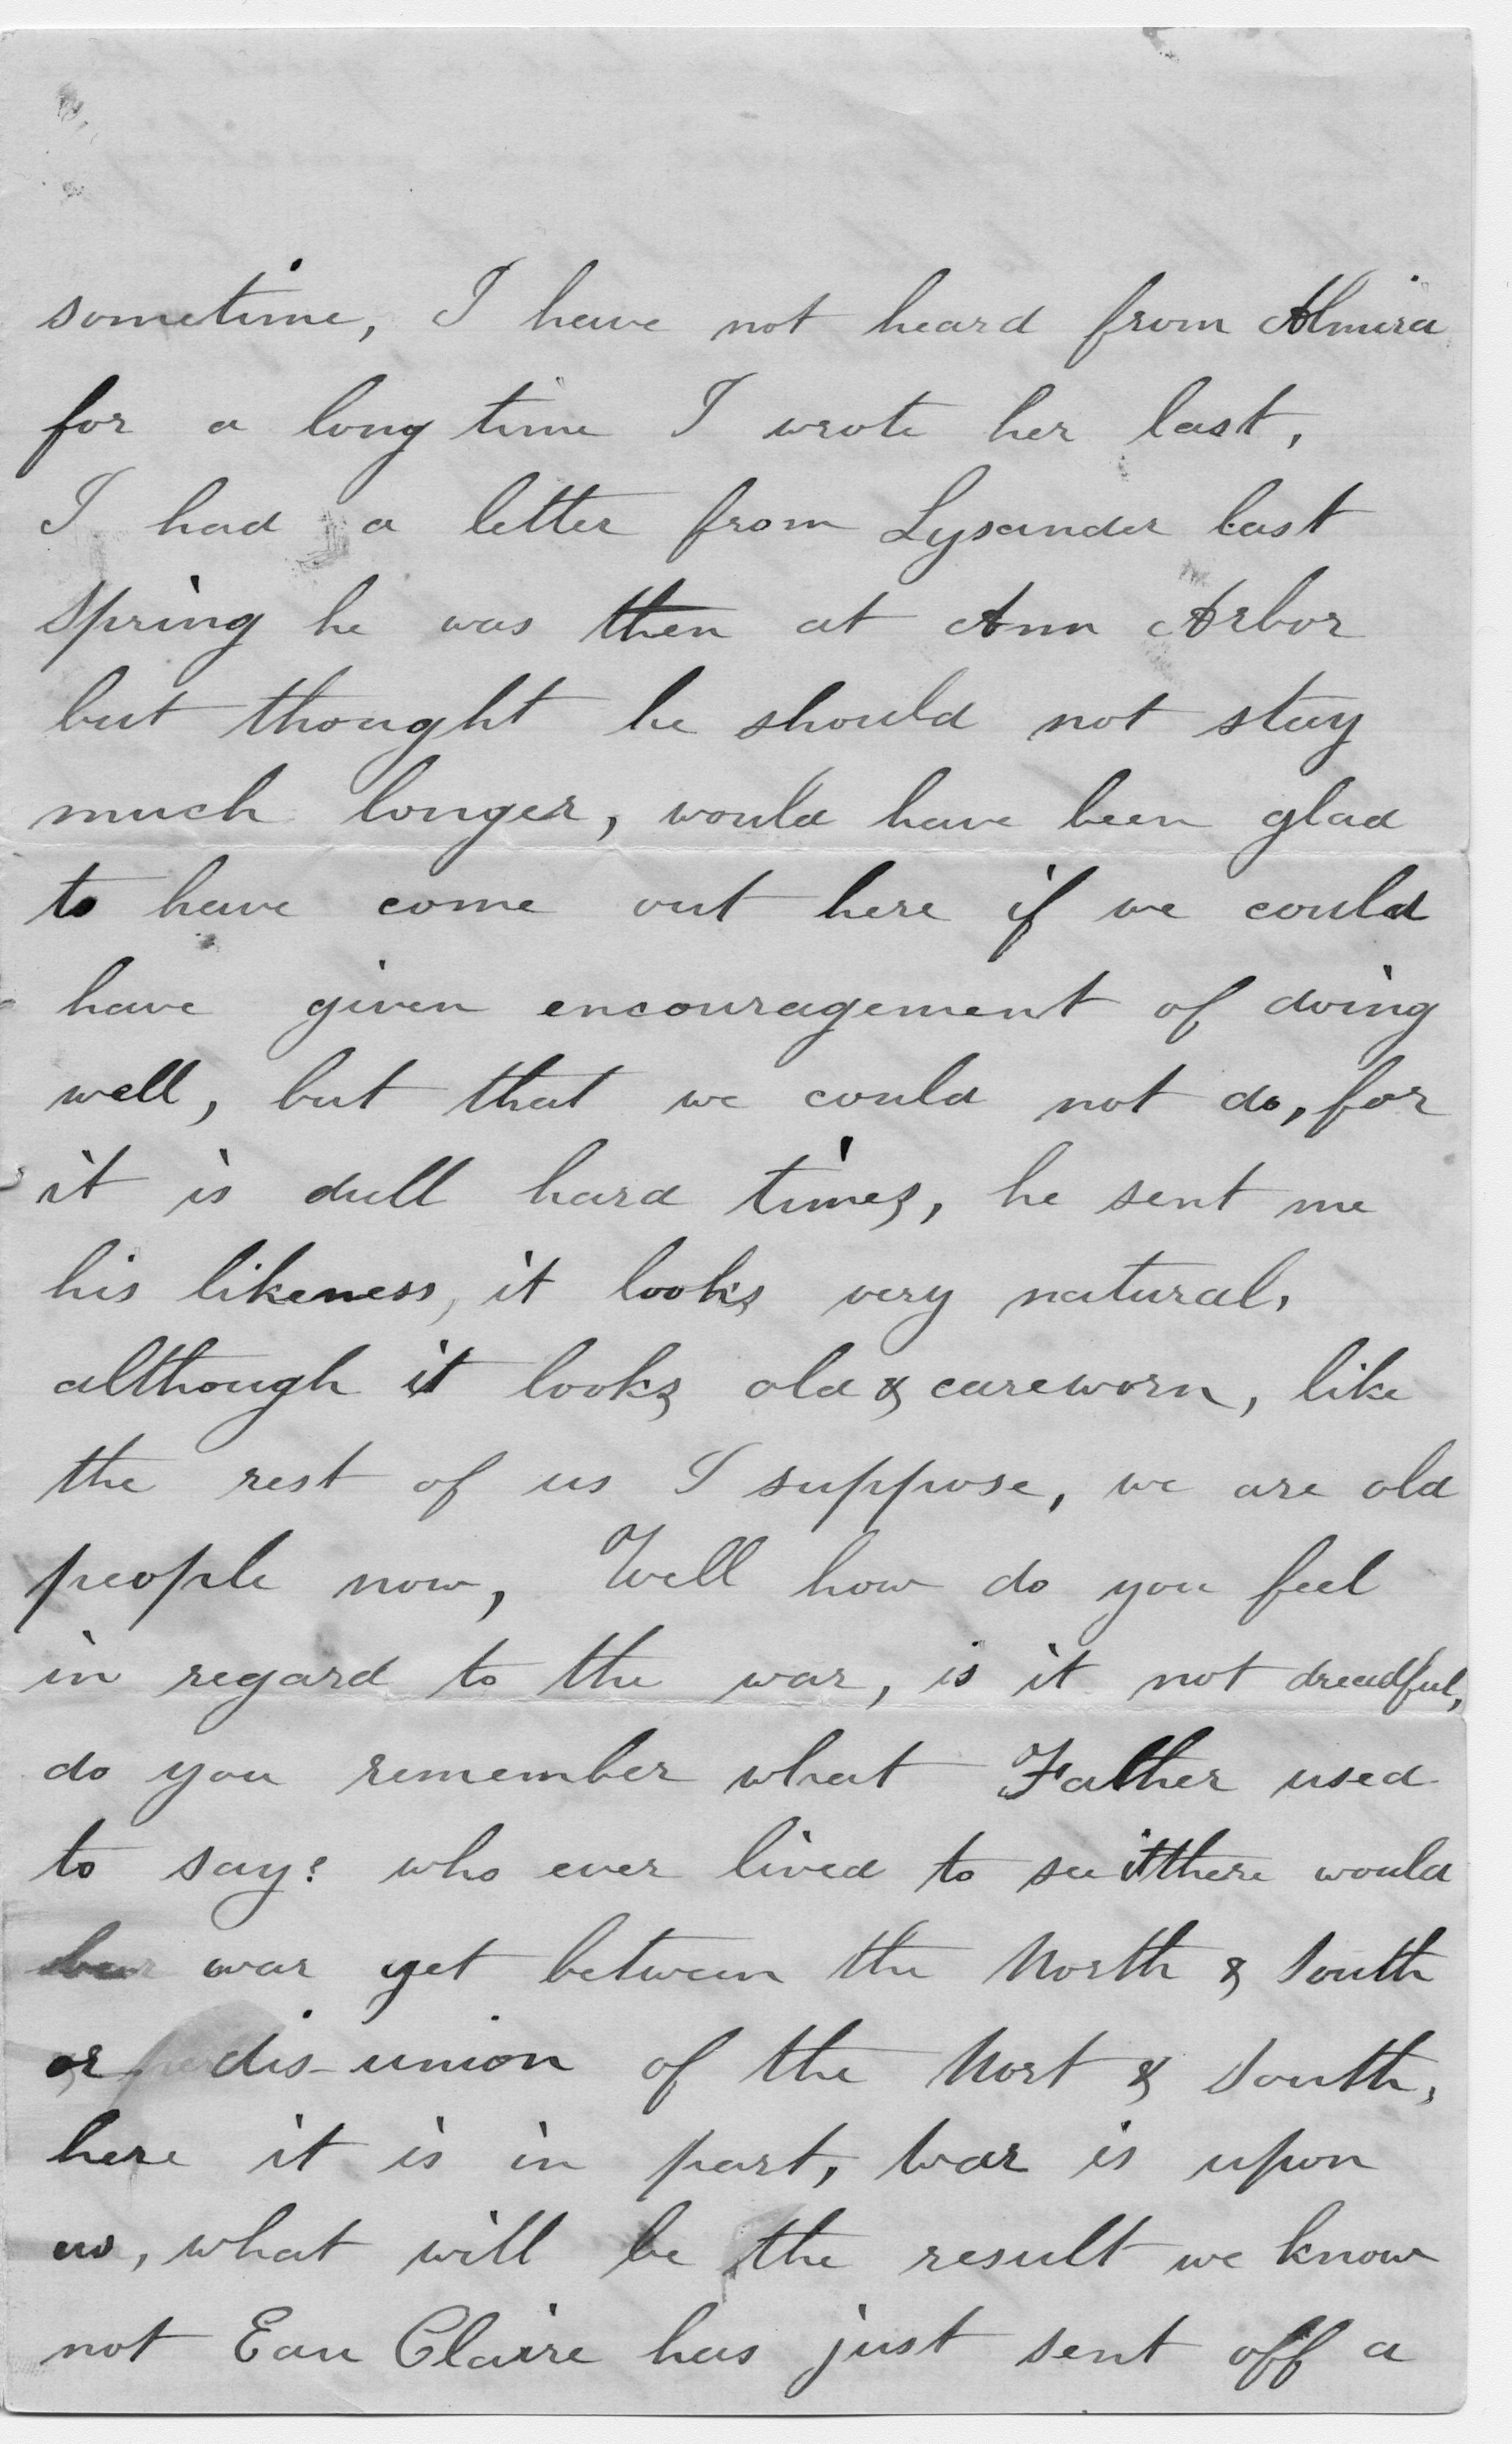 sometime, I have not heard from Almira
for a long time I wrote her last,
I had a letter from Lysander last
spring he was then at Ann Arbor
but thought he should not stay
much longer, would have been glad
to have come out here if we could
have given encouragement of doing
well, but that we could not do, for
it is dull hard times, he sent me
his likeness, it looks very natural,
although it looks old & careworn, like
the rest of us I suppose, we are old
people now, Well how do you feel
in regard to the war, is it not dreadful,
do you remember what Father used
to say? who ever lived to see it there would
war yet between the North & South
or dis-union of the Nort & South,
here it is in part, War is upon
us, what will be the result we know
not Eau Claire has just sent off a